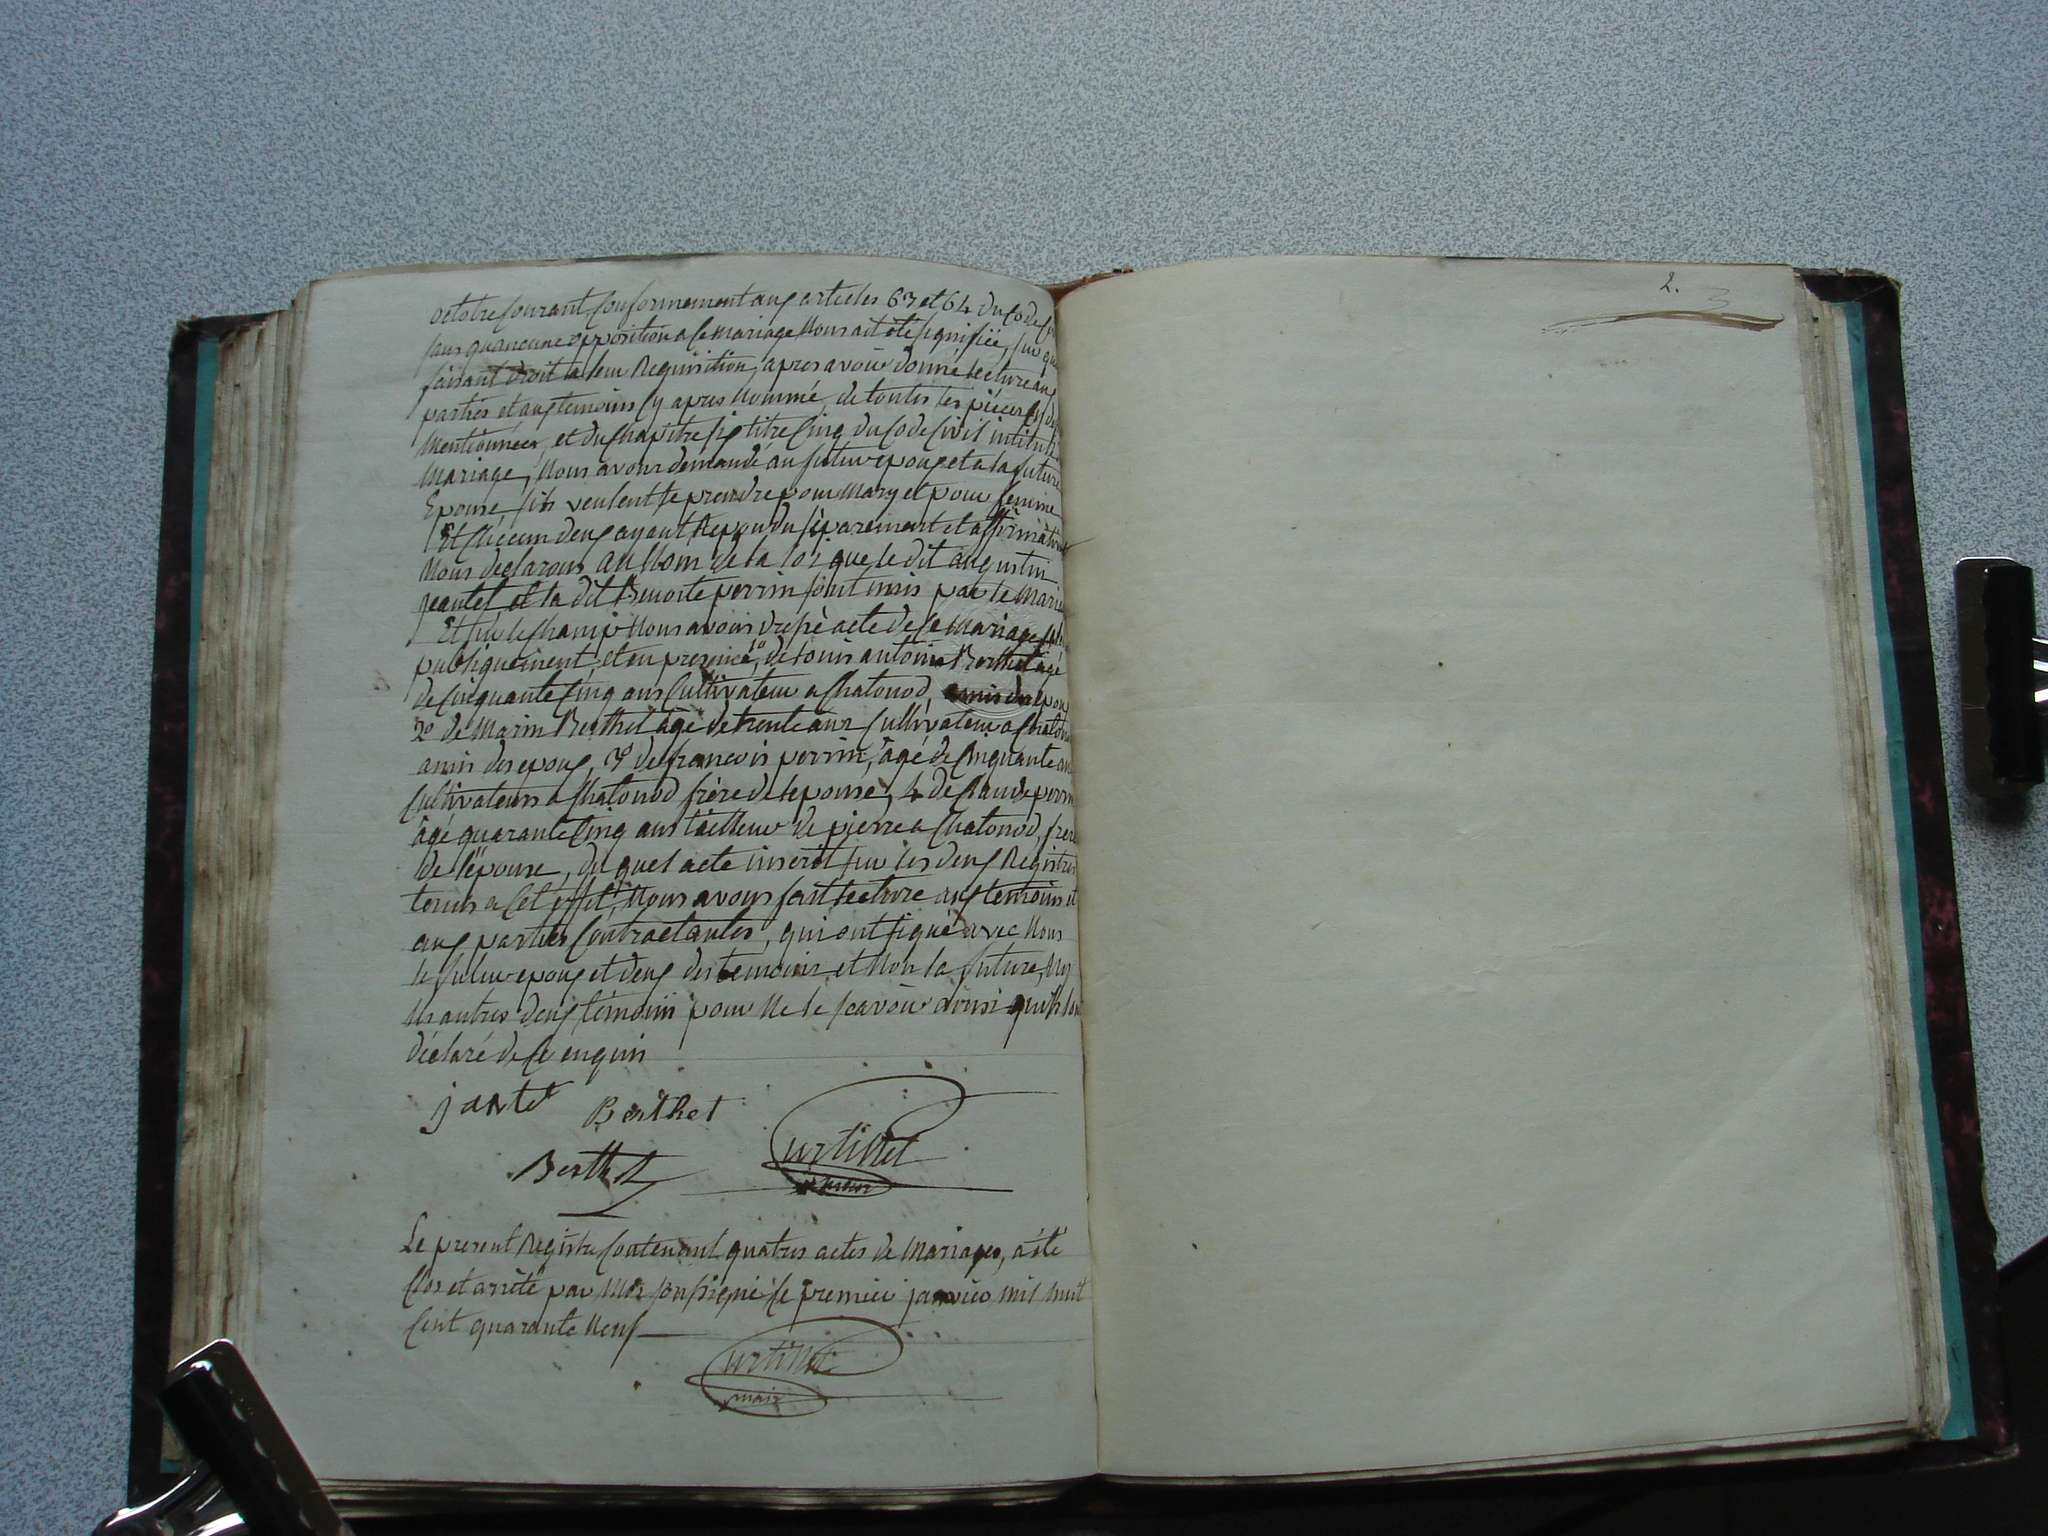 octobre courant conformement aux articles 63 et 64 du Code
sans qu'aucune opposition a ce mariage Nous ait été signifiée, sur quoi
faisant droit a leur Requisition, apres avoir donné lecture aux
parties et aux temoins cy apres Nommé, de toutes les piéces cy
Mentionnées, et du chapitre six titre cinq du Code Civil intitulé
Mariage, Nous avons demandé au futur epoux et a la future
Epouse, s'ils veulent se prendre pour Mary et pour femme
Et chacun deux ayant Repondu séparement et affirmativ
Nous declarons au Nom de la loi que le dit augustin
jeantet et la dit Benoite perrin sont unis par le Maria
Et sur le champ Nous avons dressé acte de ce Mariage
publiquement, et en presence, 1º de Louis antoine Berthet agé
de cinquante cinq ans Cultivateur a Chatonod, amis des epoux
2º de Marin Berthet âgé de trente ans Cultivateur a Chatonod
amis des epoux, 3º de francois perrin, âgé de cinquante ans
Cultivateurs a Chatonod frère de lepouse, 4 de Claude perrin
âgé quarante cinq ans tailleur de pierre a Chatonod, frere
de l'épouse, du quel acte inscrit sur les deux Registres
tenus a cet effet, Nous avons fait lecture aux temoins et
aux parties Contractantes, qui ont signé avec Nous
le futur epoux et deux des temoins, et Non la future, Ny
les autres deux témoins pour Ne le scavoir ainsi qu'ils l'ont
déclaré de ce enquis
jantet Berthet
Berthet Curtillet
maire
Le present Registre contenant quatres actes de Mariages, a été
Clos et arrêté par Moi soussigné le premier janvier mil huit
Cent quarante Neuf
Curtillet
maire
2.